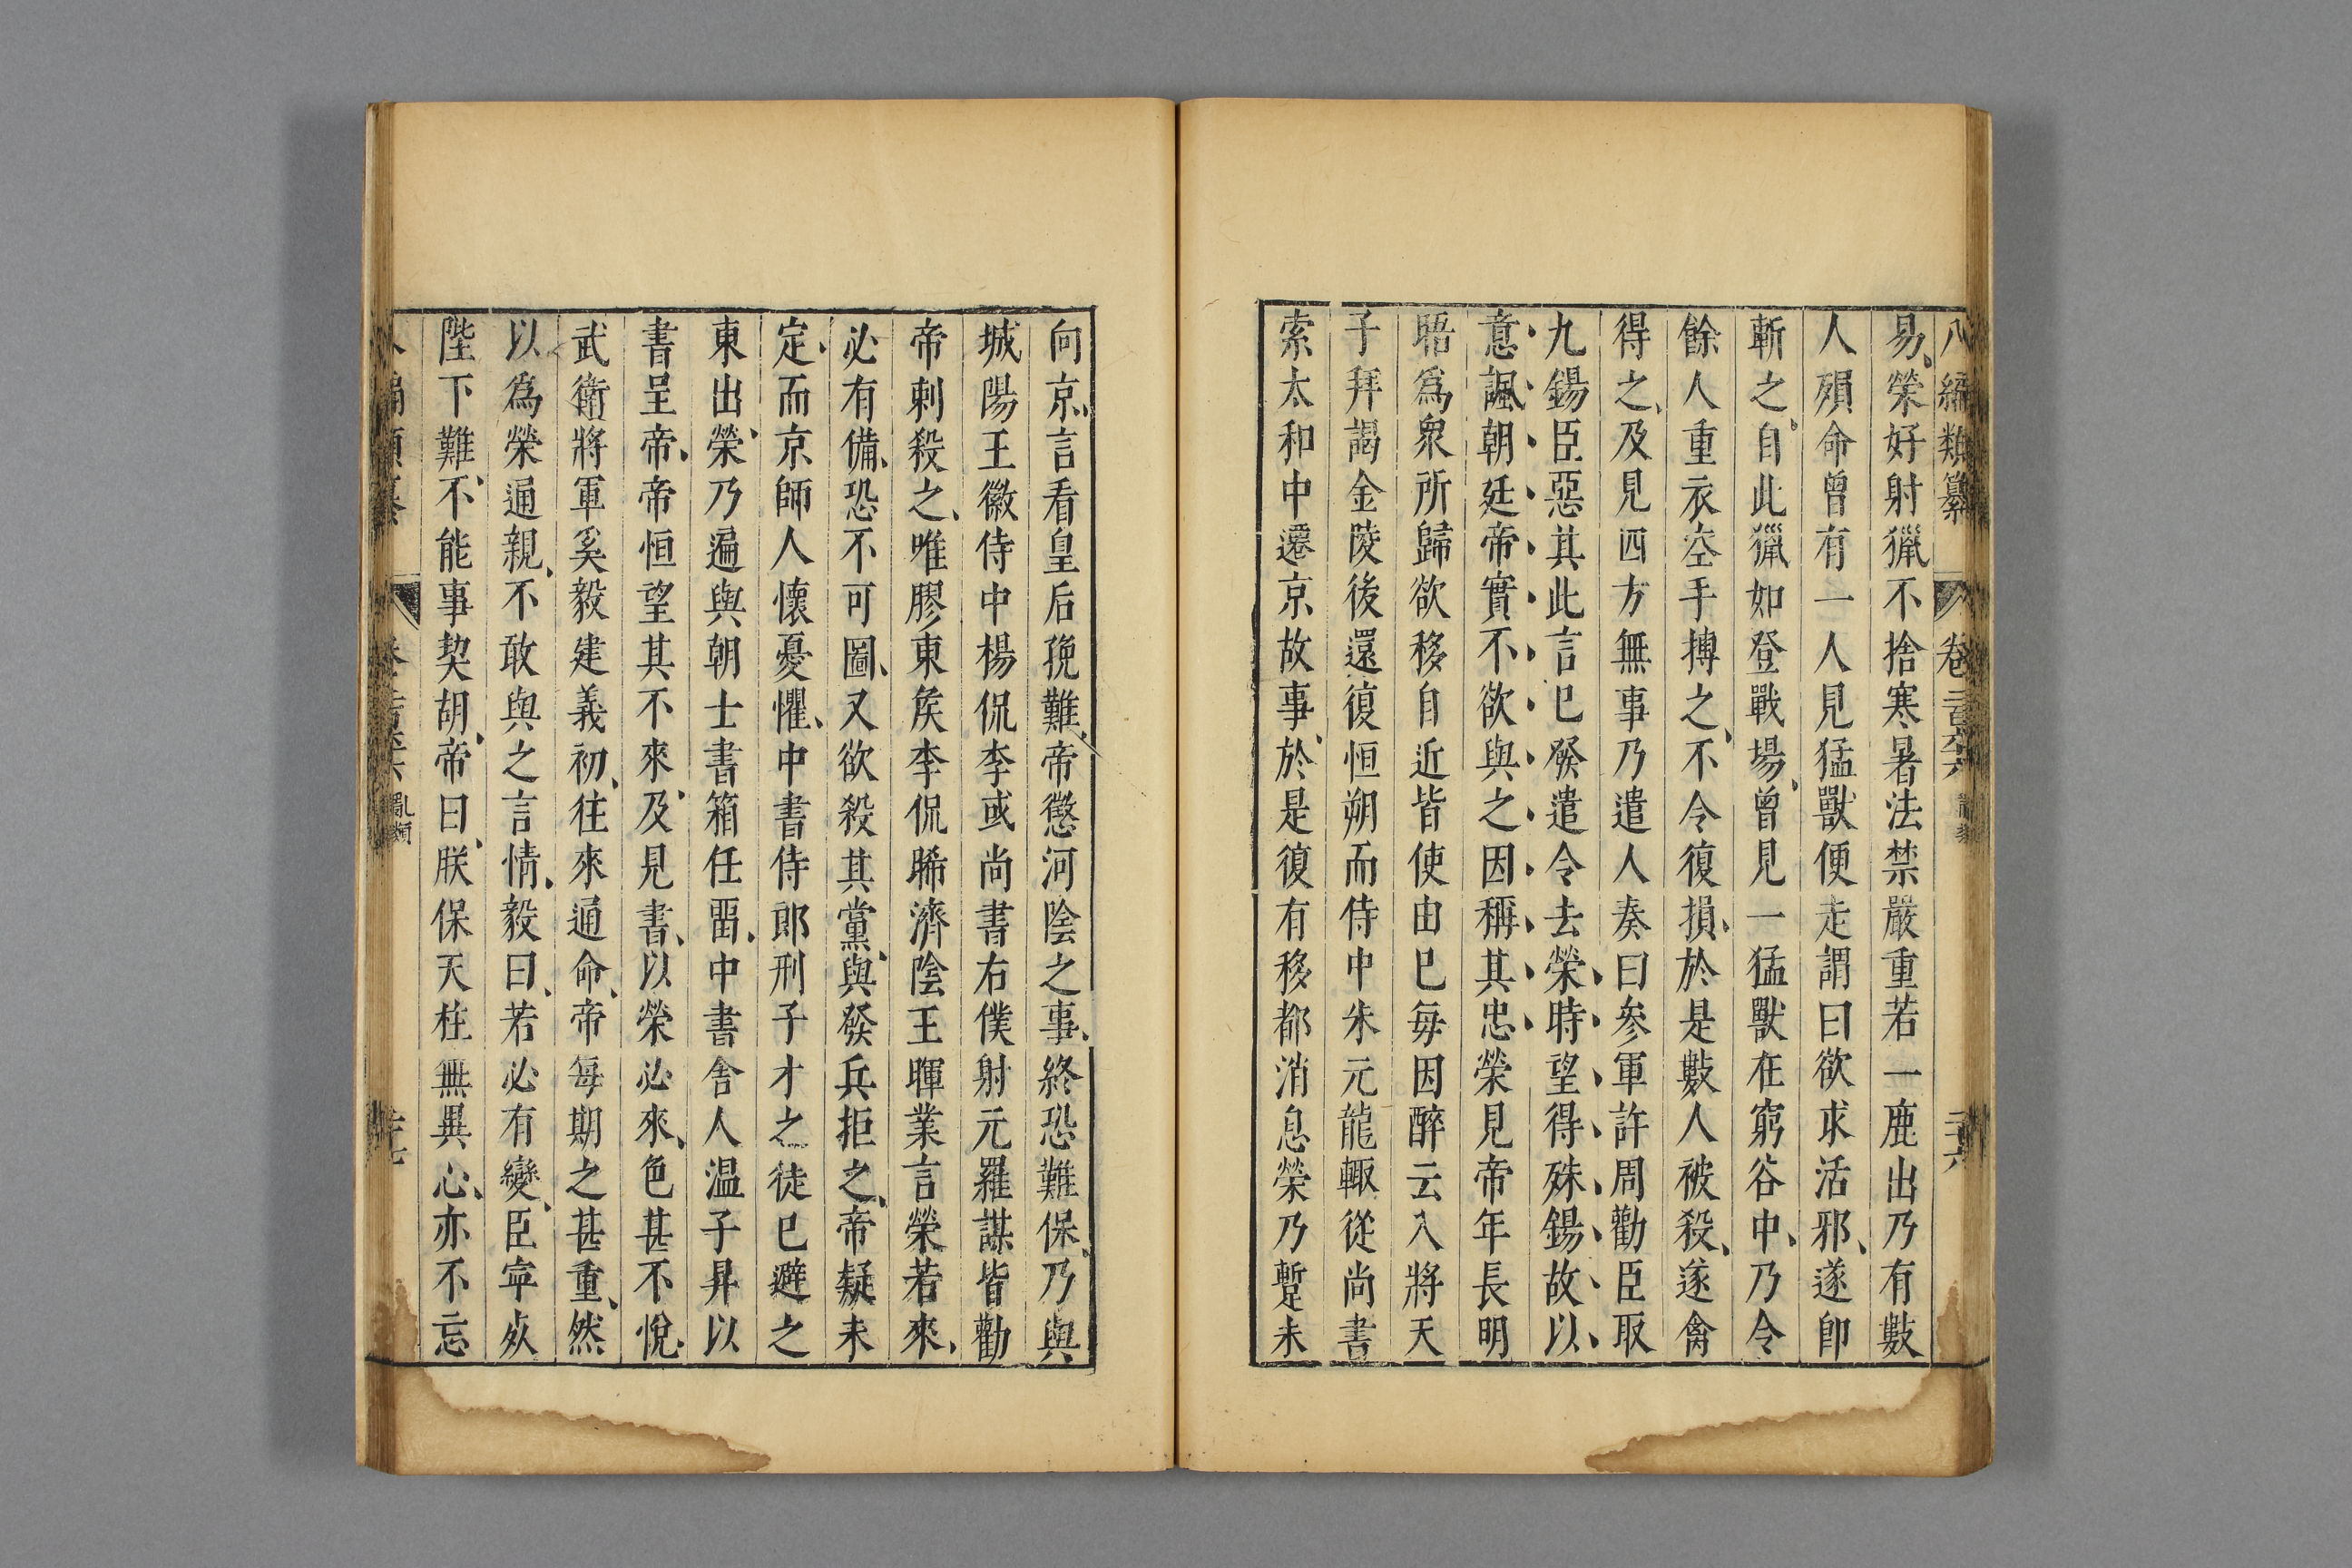 八編類纂　卷二百六十六　亂類　二十六
易榮好射獵不捨寒暑法禁嚴重若一鹿出乃有數
人殞命曾有一人見猛獸便走謂曰欲求活邪遂卽
斬之自此獵如登戰場曾見一猛獸在窮谷中乃令
餘人重衣空手搏之不令復損於是數人被殺遂禽
得之及見四方無事乃遣人奏曰參軍許周勸臣取
九錫臣惡其此言已發遣令去榮時望得殊錫故以
意諷朝廷帝實不欲與之因稱其忠榮見帝年長明
晤爲眾所歸欲移自近皆使由已每因醉云入將天
子拜謁金陵後還復恒朔而侍中朱元龍輙從尚書
索太和中遷京故事於是復有移都消息榮乃暫來
向京言看皇后㝃難帝懲河陰之事終恐難保乃與
城陽王徽侍中楊侃李彧尚書右僕射元羅謀皆勸
帝刺殺之唯膠東矦李侃晞濟陰王暉業言榮若來
必有備恐不可圖又欲殺其黨與發兵拒之帝疑未
定而京師人懷憂懼中書侍郎刑子才之徒已避之
東出榮乃遍與朝士書箱任畱中書舍人温子昇以
書呈帝帝恒望其不來及見書以榮必來色甚不悅
武衛將軍奚毅建義初往來通命帝每期之甚重然
以爲榮通親不敢與之言情毅曰若必有變臣寧㱔
陛下難不能事契胡帝曰朕保天柱無異心亦不忘